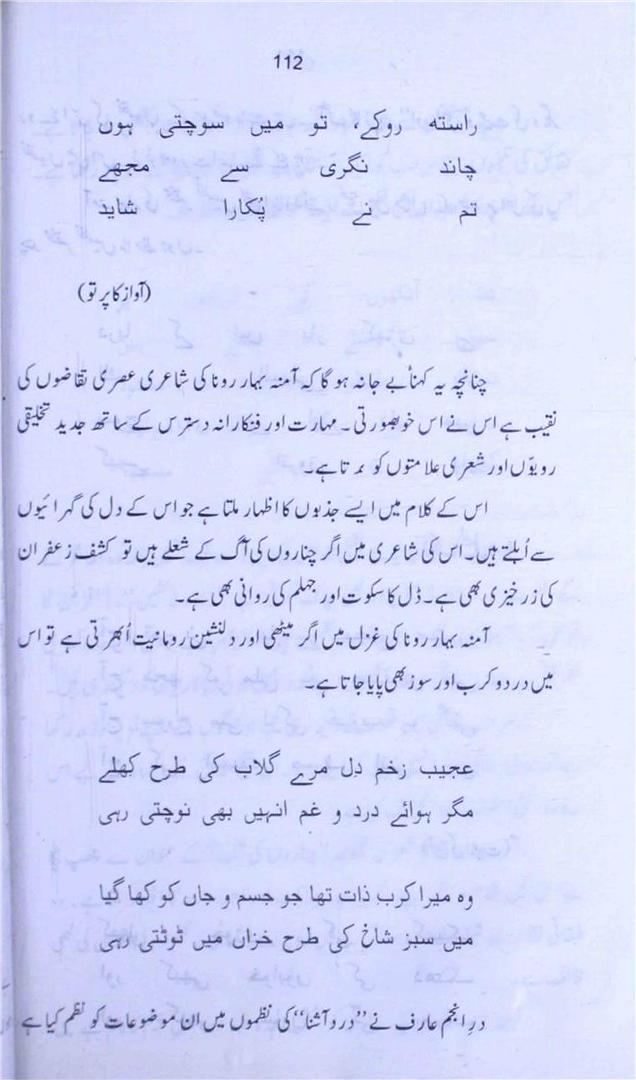 112
راستہ روکے، تو میں سوچتی ہوں
چاند نگری سے مجھے
تم نے پُکارا شاید
(آواز کا پرتو)
چنانچہ یہ کہنا بے جا نہ ہو گا کہ آمنہ بہار رونا کی شاعری عصری تقاضوں کی
نقیب ہے اس نے اس خوبصورتی۔ مہارت اور فنکارانہ دسترس کے ساتھ جدید تخلیقی
رویوّں اور شعری علامتوں کو برتا ہے۔
اس کے کلام میں ایسے جذبوں کا اظہار ملتا ہے جو اس کے دل کی گہرائیوں
سے اُبلتے ہیں۔ اس کی شاعری میں اگر چناروں کی آگ کے شعلے ہیں تو کشف زعفران
کی زرخیزی بھی ہے۔ ڈل کا سکوت اور جہلم کی روانی بھی ہے۔
آمنہ بہار رونا کی غزل میں اگر میٹھی اور دلنشین رومانیت اُبھرتی ہے تو اس
میں درد و کرب اور سوز بھی پایا جاتا ہے۔
عجیب زخم دِل مرے گلاب کی طرح کھلے
مگر ہوائے درد و غم انہیں بھی نوچتی رہی
وہ میرا کرب ذات تھا جو جسم و جاں کو کھا گیا
میں سبز شاخ کی طرح خزاں میں ٹوٹتی رہی
درِ انجم عارف نے ”درد آشنا“ کی نظموں میں ان موضوعات کو نظم کیا ہے